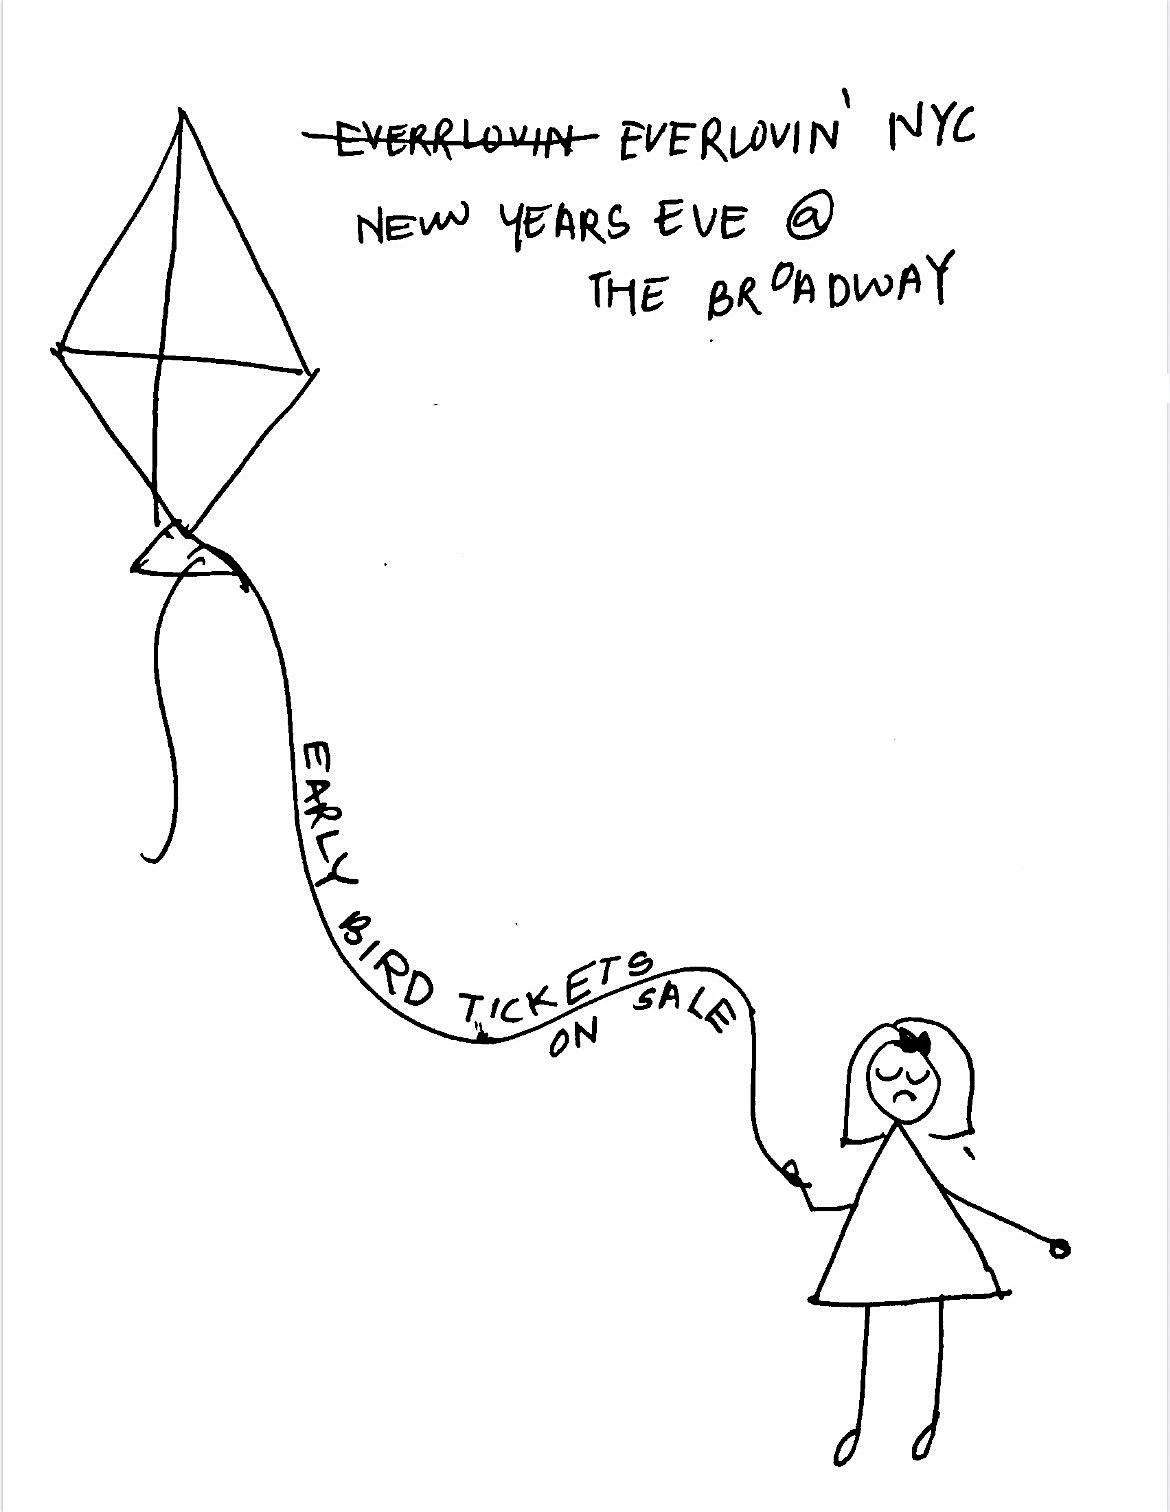 EVERRLOVIN EVERLOVIN' NYC
NEW YEARS EVE @
THE BROADWAY
EARLY BIRD TICKETS
ON SALE